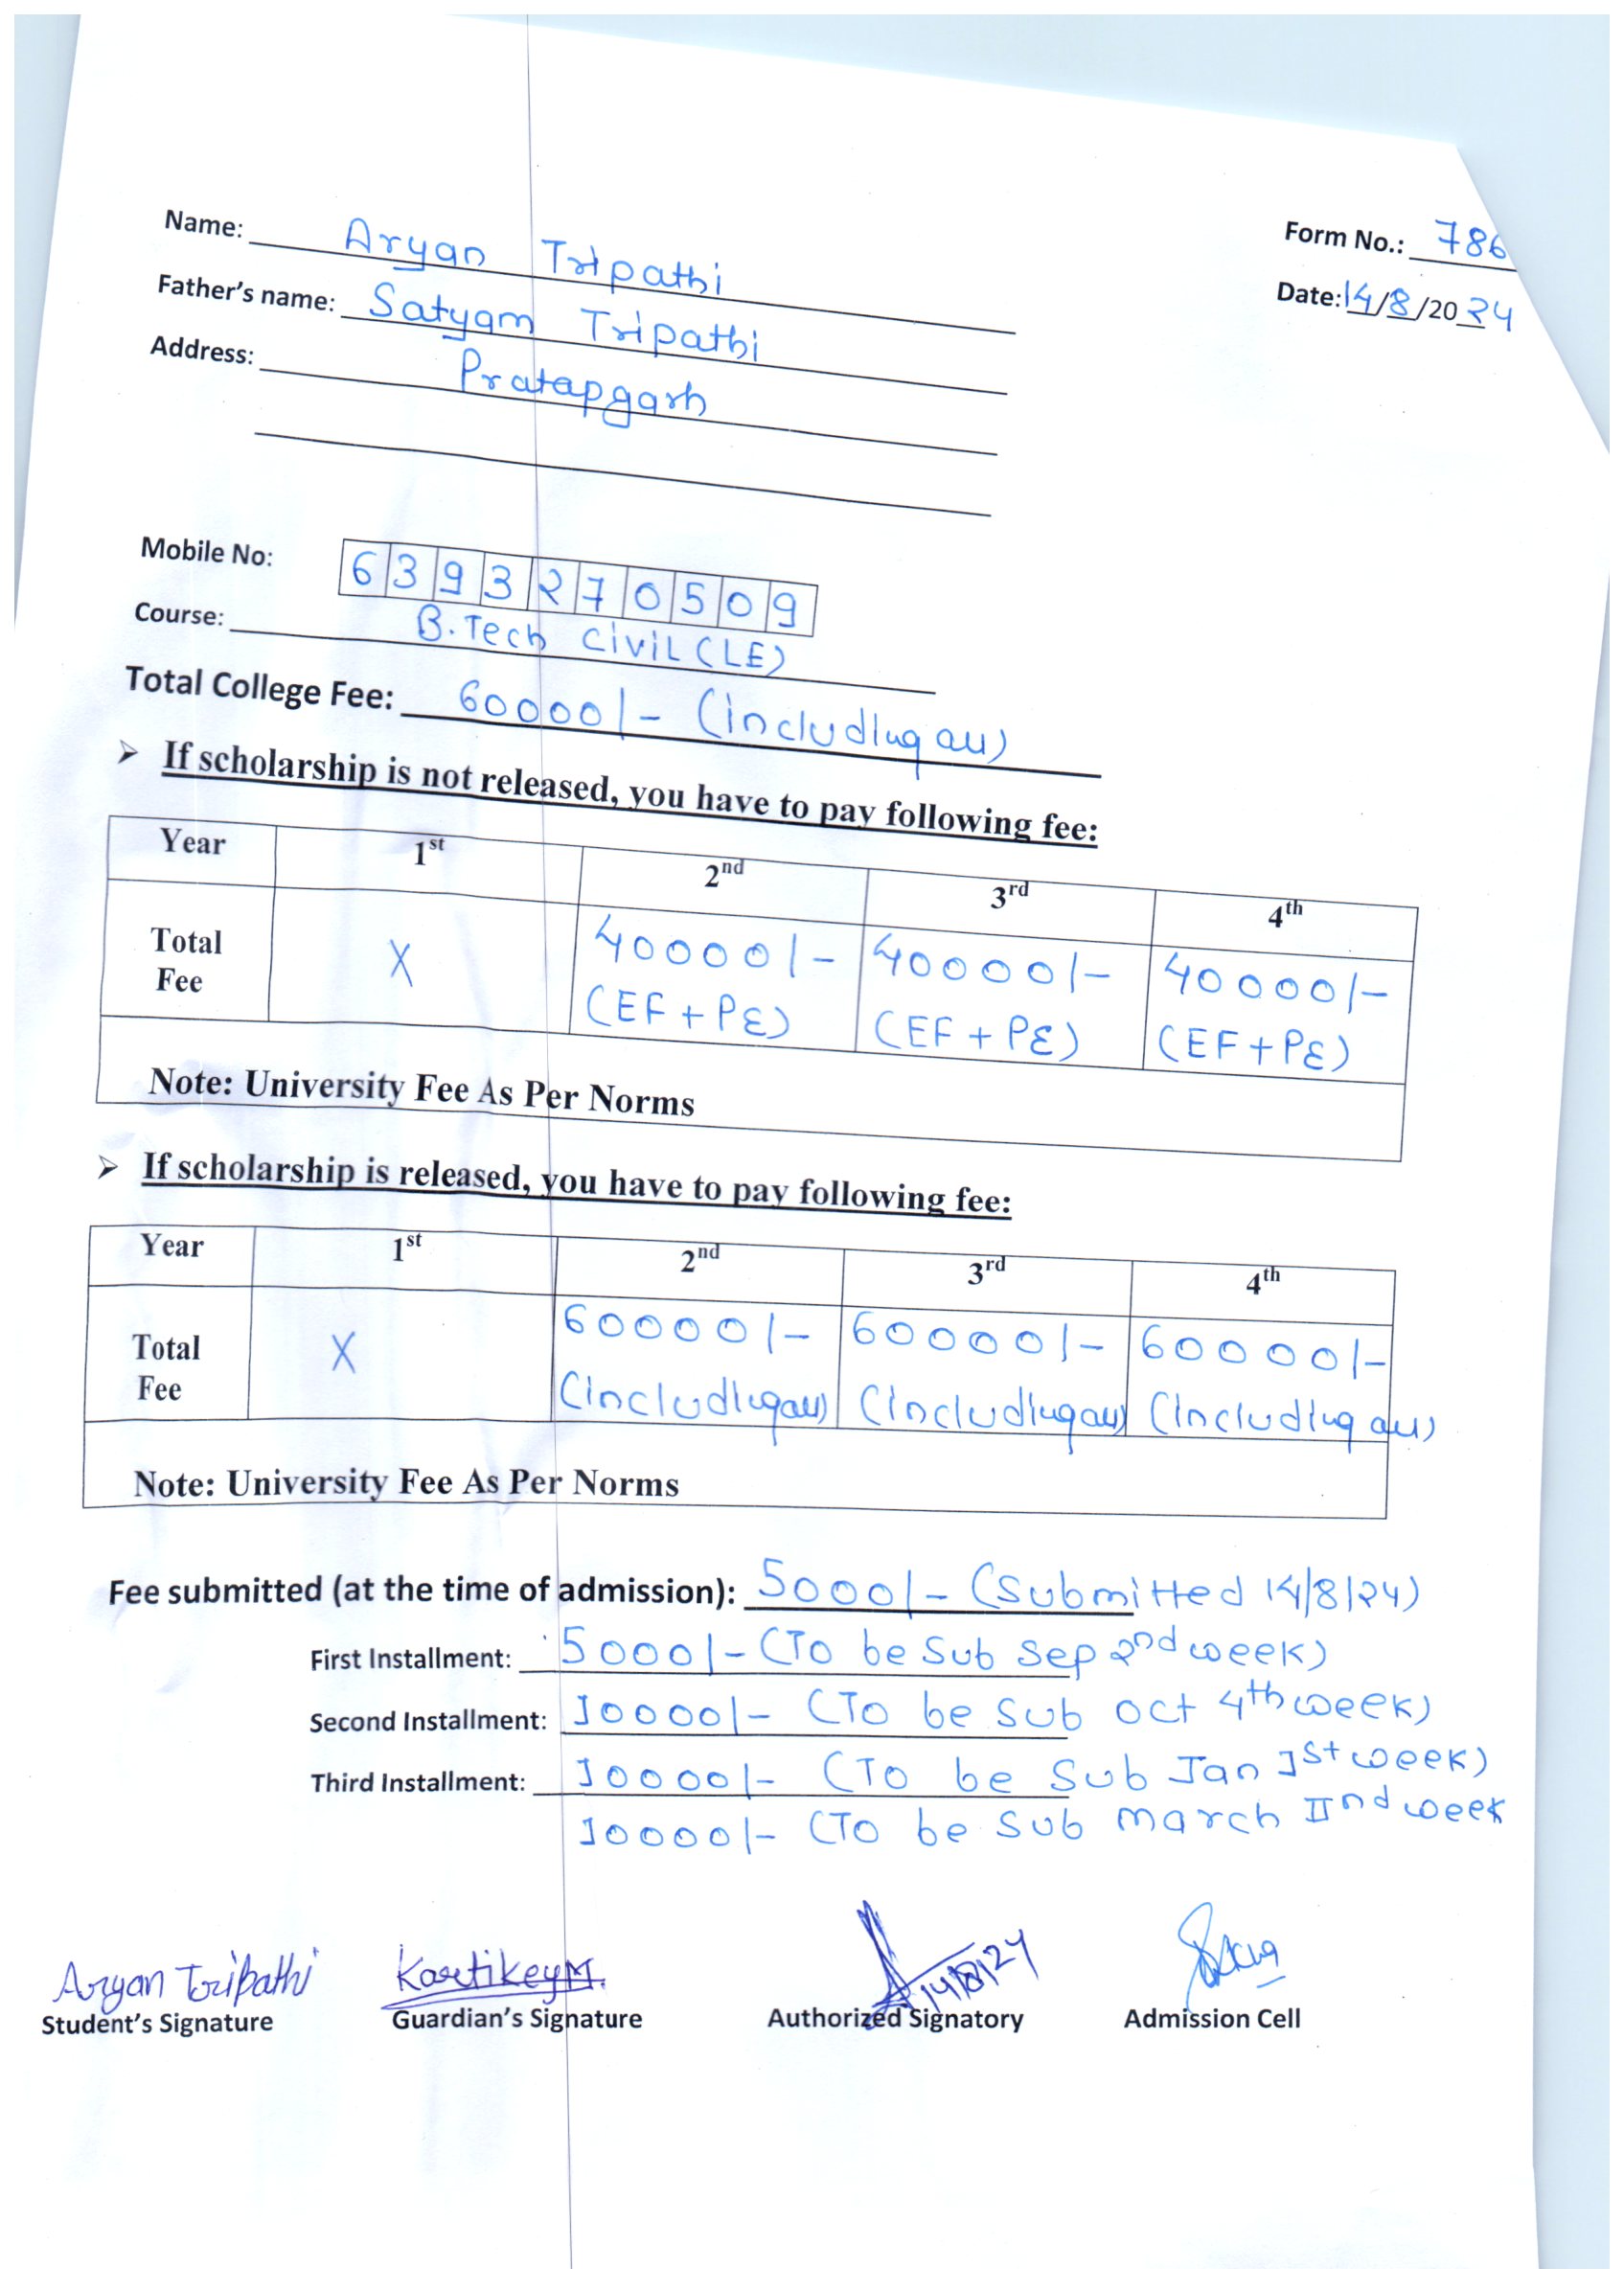 Form No.: 786
Name: Aryan Tripathi
Date: 14/8/2024
Father's name: Satyam Tripathi
Address: Pratapgarh
Mobile No: 6393270509
Course: B.Tech Civil (LE)
Total College Fee: 60000/- (including all)
➢ If scholarship is not released, you have to pay following fee:
Year 1st 2nd 3rd 4th
Total Fee X 40000/- (EF + PE) 40000/- (EF + PE) 40000/- (EF + PE)
Note: University Fee As Per Norms
➢ If scholarship is released, you have to pay following fee:
Year 1st 2nd 3rd 4th
Total Fee X 60000/- (including all) 60000/- (including all) 60000/- (including all)
Note: University Fee As Per Norms
Fee submitted (at the time of admission): 5000/- (Submitted 14/8/24)
First Installment: 5000/- (To be Sub Sep 2nd week)
Second Installment: 10000/- (To be Sub Oct 4th week)
Third Installment: 10000/- (To be Sub Jan 1st week)
10000/- (To be Sub march IInd week
Aryan Tripathi Kartikey M. 14/8/24
Student's Signature Guardian's Signature Authorized Signatory Admission Cell